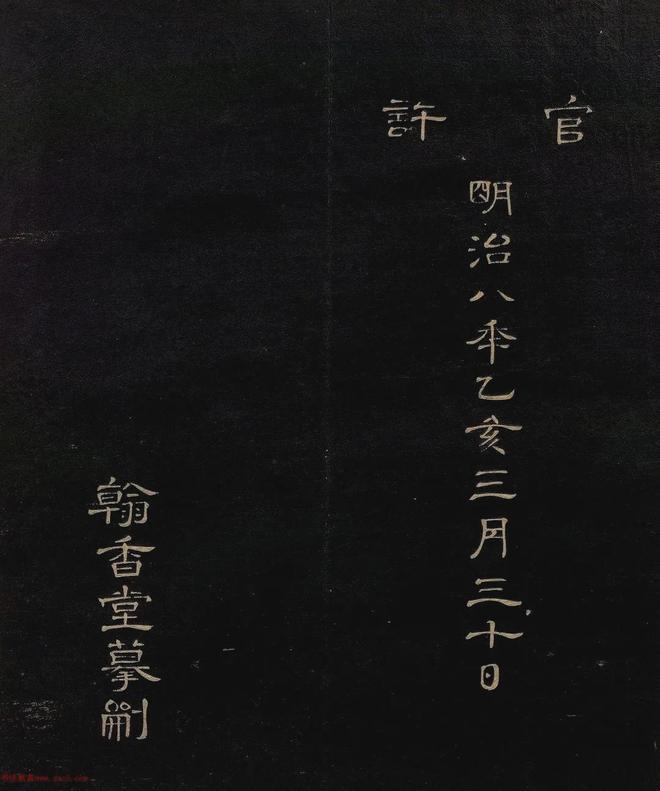 官許
明治八年乙亥三月三十日
翰香堂摹